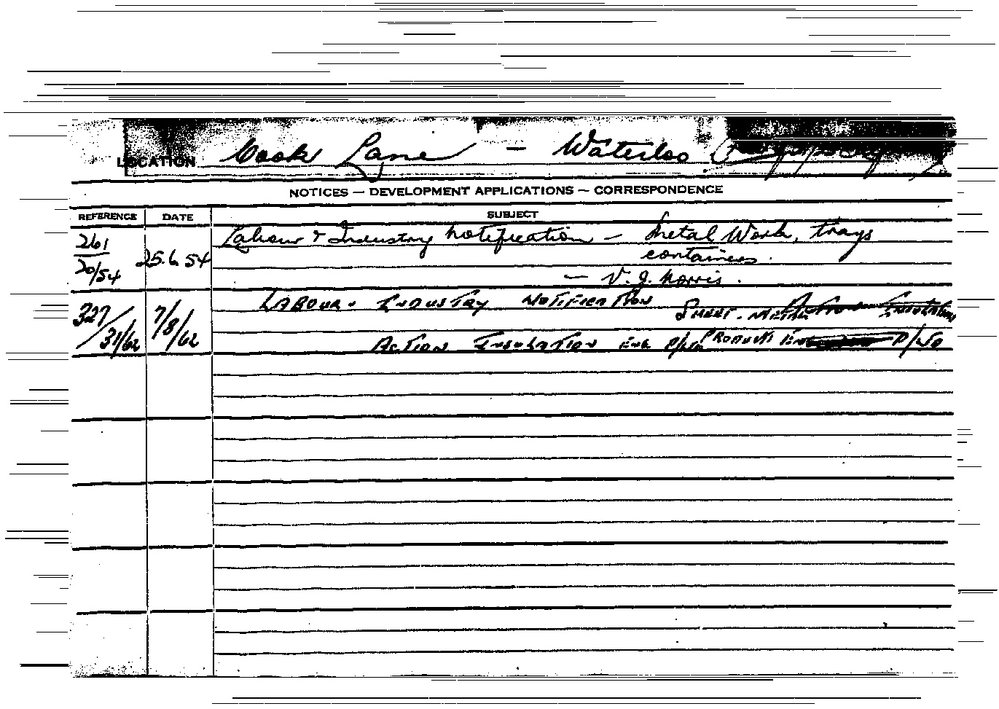 LOCATION Cook Lane — Waterloo
NOTICES — DEVELOPMENT APPLICATIONS — CORRESPONDENCE
REFERENCE DATE SUBJECT
261 25.6.54 Labour & Industry notification — Metal Work, trays
20/54 containers.
— V. J. Morris.
327 7/8/62 LABOUR & INDUSTRY NOTIFICATION SHEET-METAL
31/62 ACTION INSULATION ENG P/LTD PRODUCTS P/LTD